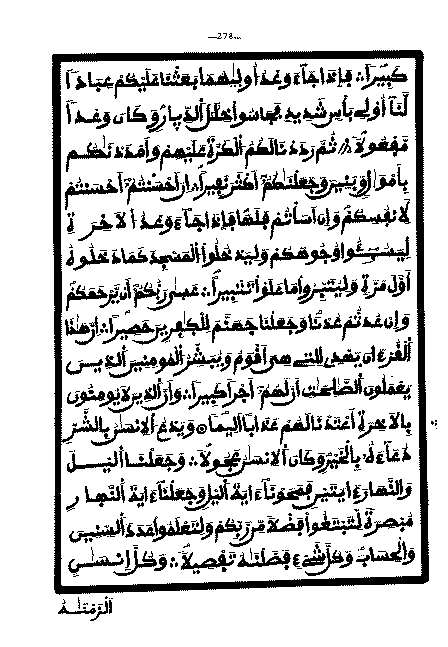 —278—
كبيرا ∴ فإذا جاء وعد أوليهما بعثنا عليكم عبادا
لنا أولي بأس شديد فجاسوا خلل الديار وكان وعدا
مفعولا ∴ ثم رددنا لكم الكرة عليهم وأمددنكم
بأمول وبنين وجعلنكم أكثر نفيرا ∴ إن أحسنتم أحسنتم
لأنفسكم وإن أسأتم فلها فإذا جاء وعد الأخرة
ليسـوا وجوهكم وليدخلوا المسجد كما دخلوه
أول مرة وليتبروا ما علوا تتبيرا ∴ عسى ربكم أن يرحمكم
وإن عدتم عدنا وجعلنا جهنم للكفرين حصيرا ∴ إن هذا
القرءان يهدي للتي هي أقوم ويبشر المومنين الذين
يعملون الصلحت أن لهم أجرا كبيرا ∴ وأن الذين لا يومنون
بالأخرة أعتدنا لهم عذابا أليما ○ ويدع الإنسن بالشر
دعاءه بالخير وكان الإنسن عجولا ∴ وجعلنا اليل
والنهار ءايتين فمحونا ءاية اليل وجعلنا ءاية النهار
مبصرة لتبتغوا فضلا من ربكم ولتعلموا عدد السنين
والحساب وكل شيء فصلنه تفصيلا ∴ وكل إنسن
الزمنه